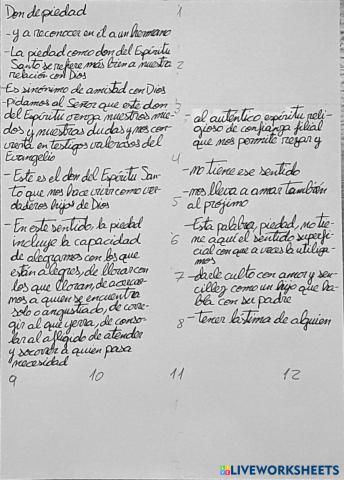 Don de piedad
- y a reconocer en él a un hermano
- La piedad como don del Espíritu
Santo se refiere más bien a nuestra
relación con Dios
- Es sinónimo de amistad con Dios
- Pidamos al Señor que este don
del Espíritu venza nuestros mie-
dos y nuestras dudas y nos con-
vierta en testigos valerosos del
Evangelio
- Este es el don del Espíritu San-
to que nos hace vivir como ver-
daderos hijos de Dios
- En este sentido, la piedad
incluye la capacidad
de alegrarnos con los que
están alegres, de llorar con
los que lloran, de acercar-
nos a quien se encuentra
solo o angustiado, de corre-
gir al que yerra, de conso-
lar al afligido, de atender
y socorrer a quien pasa
necesidad
1
2
3
- al auténtico espíritu reli-
gioso de confianza filial
que nos permite rezar y
4
- no tiene ese sentido
5
- nos lleva a amar también
al prójimo
6
- Esta palabra, piedad, no tie-
ne aquí el sentido superfi-
cial con que a veces la utiliza-
mos
7
- darle culto con amor y sen-
cillez, como un hijo que ha-
bla con su padre
8
- tener lástima de alguien
9 10 11 12
LIVEWORKSHEETS